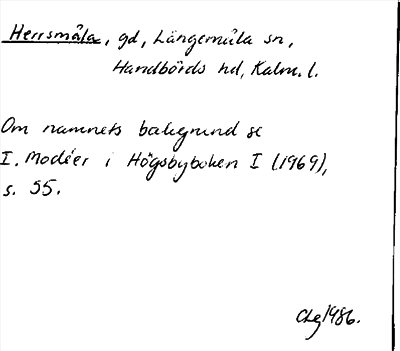 Herrsmåla, gd, Långemåla sn,
Handbörds hd, Kalm. l.
Om namnets bakgrund se
I. Modéer i Högsbyboken I (1969),
s. 55.
1986.